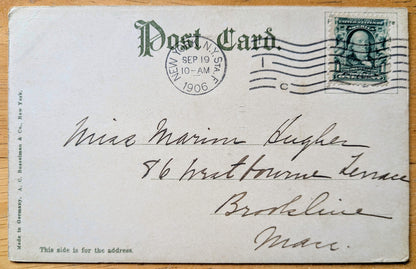 Post Card.
NEW YORK, N.Y. STA. F
SEP 19
10-AM
1906
1
C
Miss Marion Hughes
86 Westbourne Terrace
Brookline
Mass.
This side is for the address.
Made in Germany. A. C. Bosselman & Co., New York.